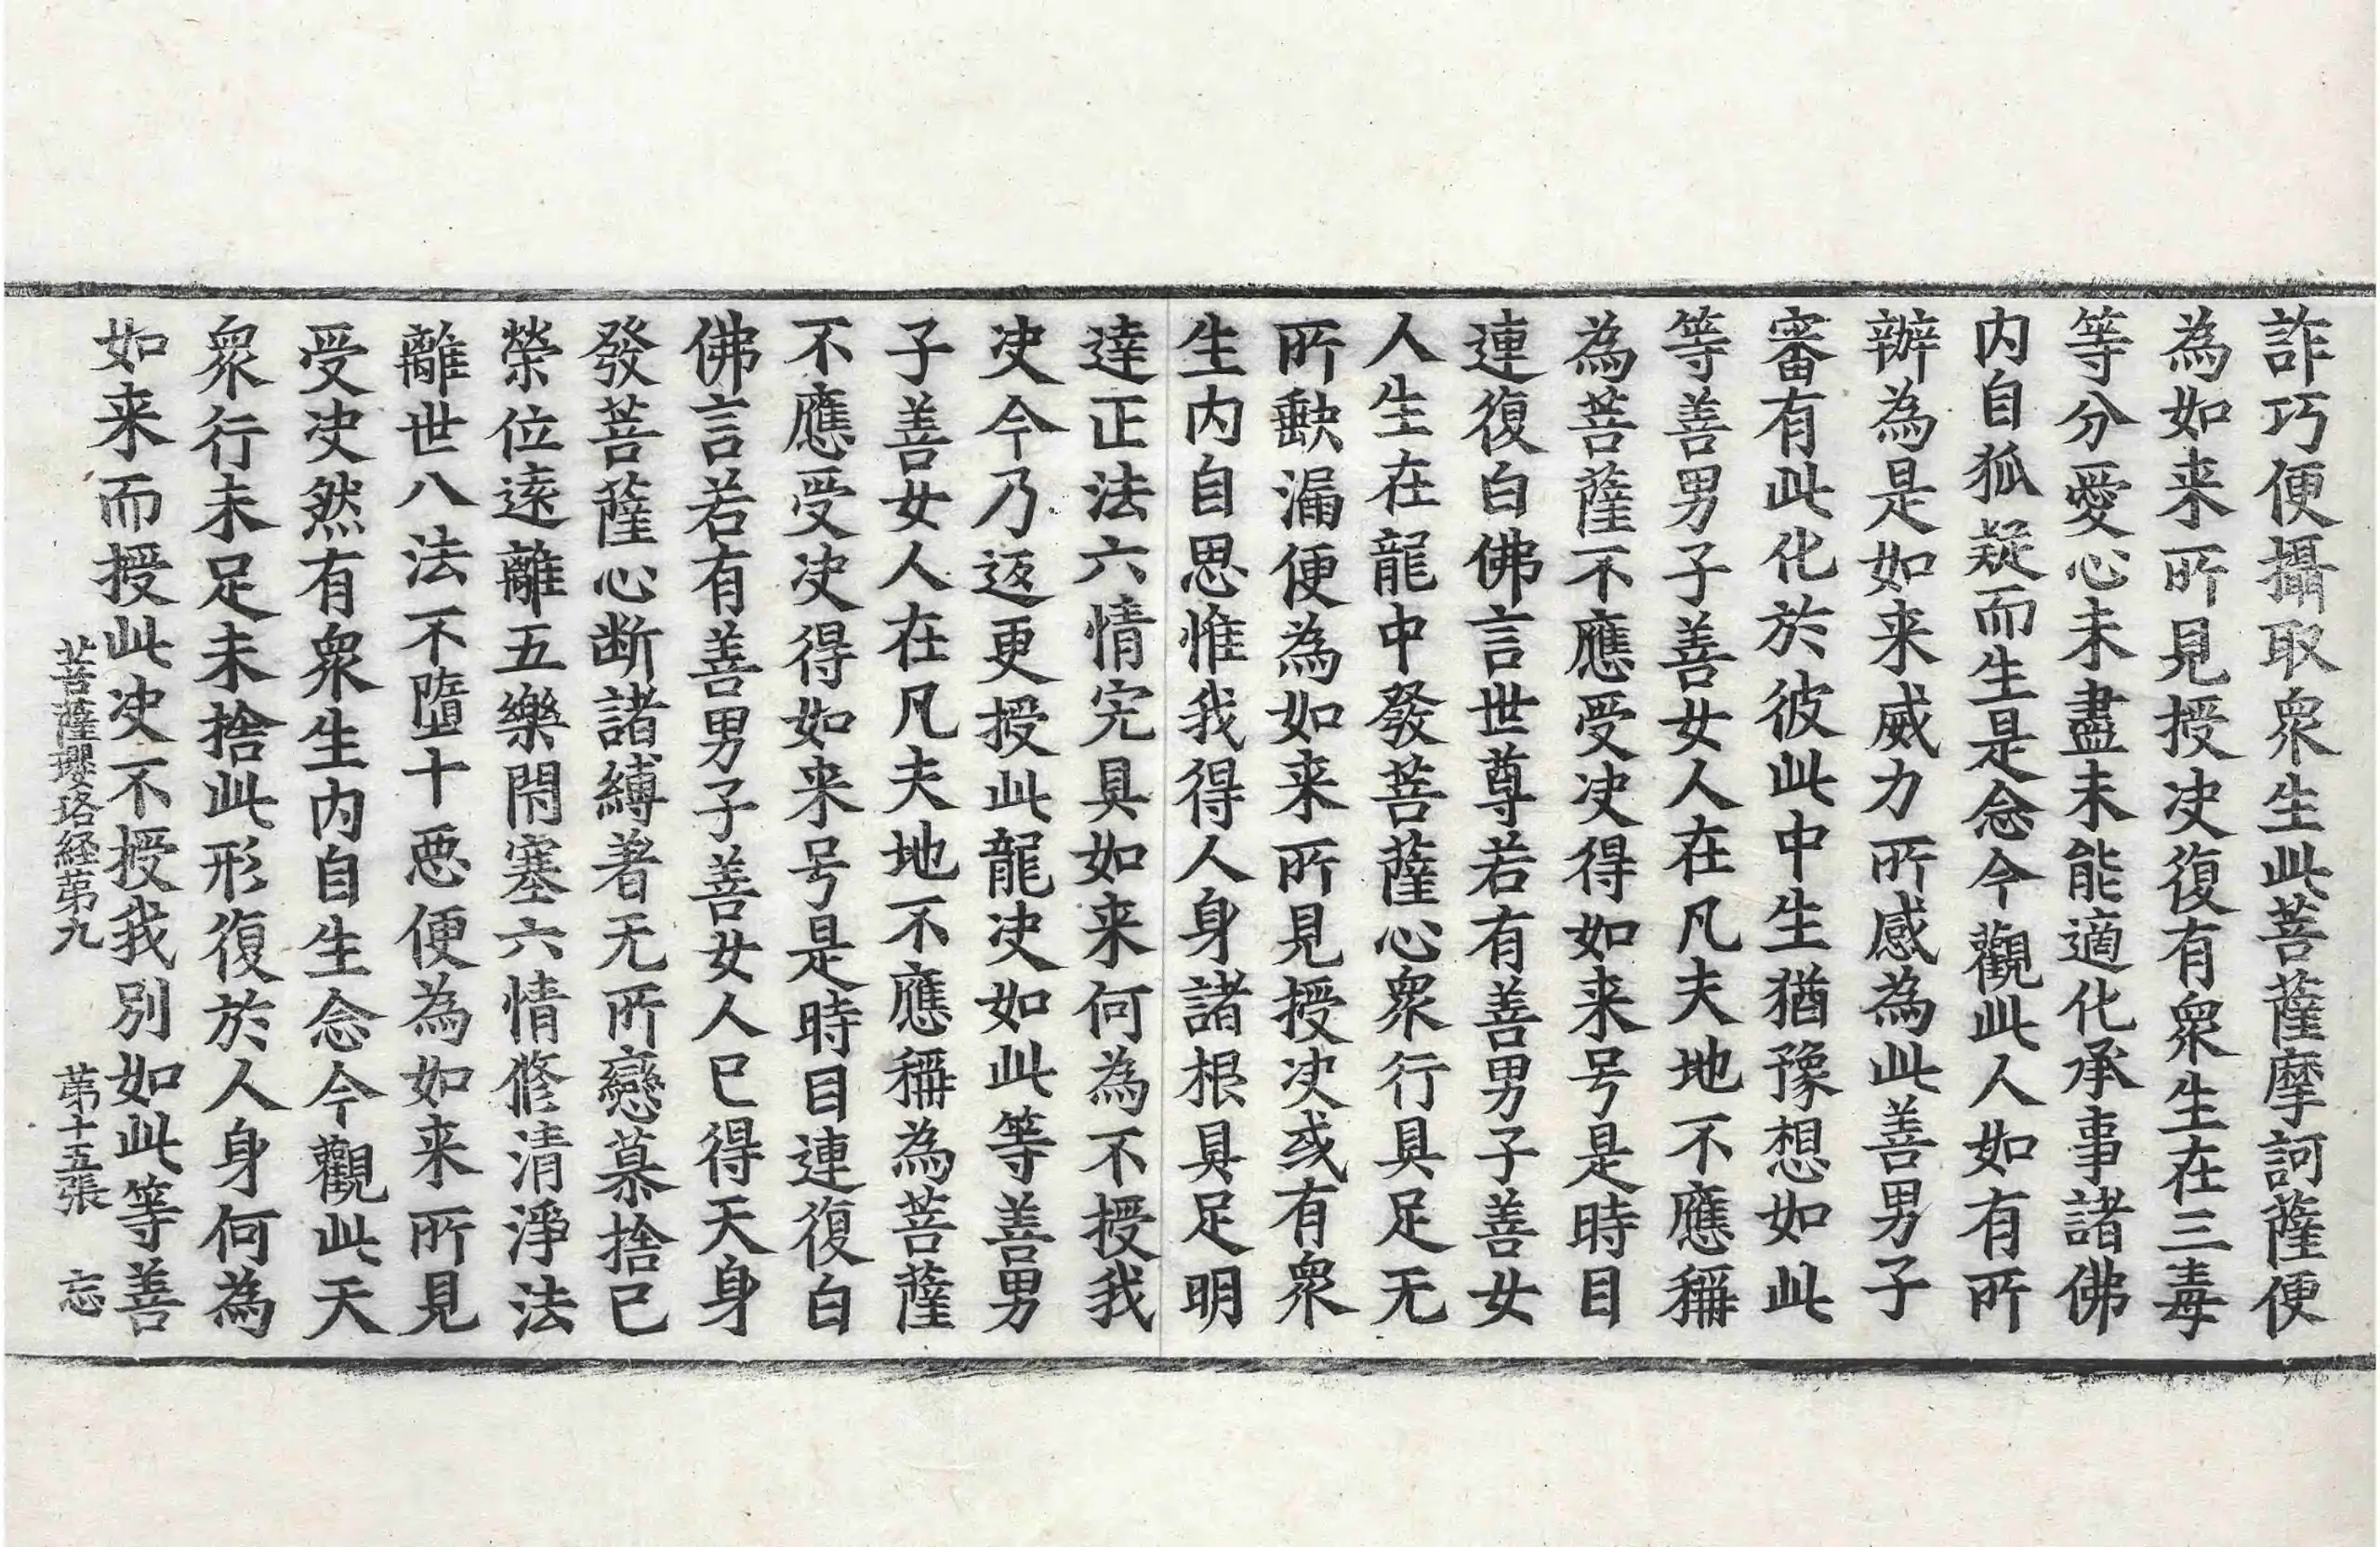 詐巧便攝取衆生此菩薩摩訶薩便
為如来所見授决復有衆生在三毒
等分愛心未盡未能適化承事諸佛
内自狐疑而生是念今觀此人如有所
辦為是如来威力所感為此善男子
審有此化於彼此中生猶豫想如此
等善男子善女人在凡夫地不應稱
為菩薩不應受决得如来号是時目
連復白佛言世尊若有善男子善女
人生在龍中發菩薩心衆行具足无
所缺漏便為如来所見授决或有衆
生内自思惟我得人身諸根具足明
達正法六情完具如来何為不授我
决今乃返更授此龍决如此等善男
子善女人在凡夫地不應稱為菩薩
不應受决得如来号是時目連復白
佛言若有善男子善女人已得天身
發菩薩心断諸縛著无所戀慕捨已
榮位遠離五樂閇塞六情修清淨法
離世八法不墮十惡便為如来所見
受决然有衆生内自生念今觀此天
衆行未足未捨此形復於人身何為
如来而授此决不授我別如此等善
菩薩瓔珞経第九　第十五張　忘